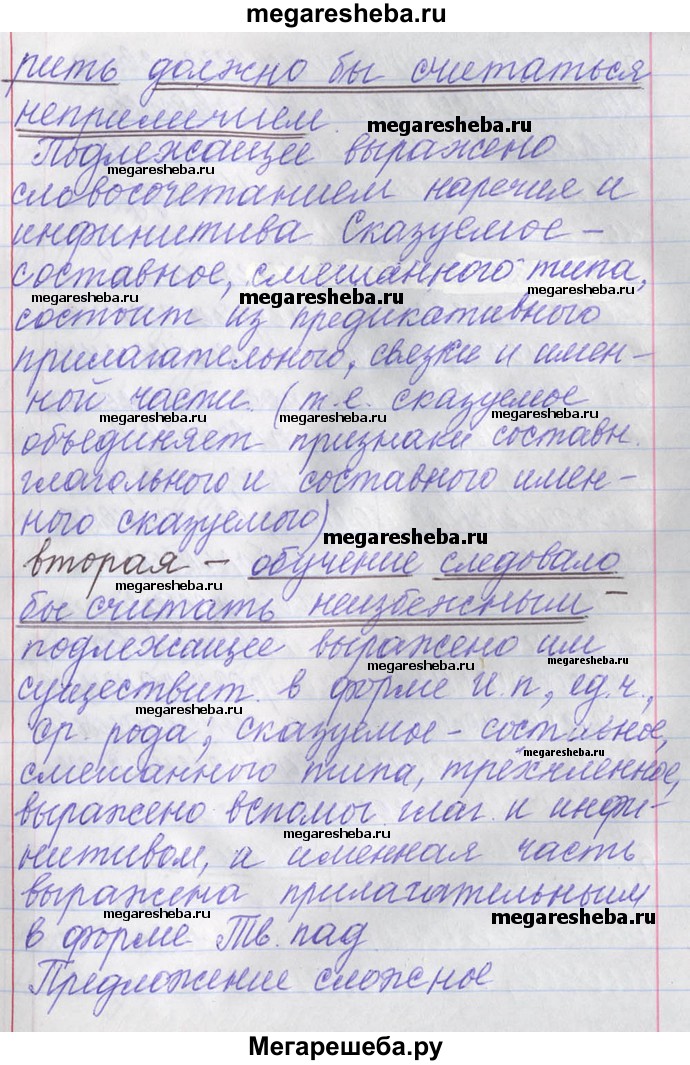 megaresheba.ru
рить должно бы считаться
неприличием.
megaresheba.ru
Подлежащее выражено
megaresheba.ru
словосочетанием наречия и
инфинитива Сказуемое –
составное, смешанного типа,
megaresheba.ru
megaresheba.ru
megaresheba.ru
состоит из предикативного
прилагательного, связки и имен-
ной части. (т.е. сказуемое
megaresheba.ru
megaresheba.ru
megaresheba.ru
объединяет признаки составн.
глагольного и составного имен-
ного сказуемого)
megaresheba.ru
вторая – обучение следовало
megaresheba.ru
бы считать неизбежным –
megaresheba.ru
подлежащее выражено им
megaresheba.ru
megaresheba.ru
существит. в форме И.п, ед.ч.,
megaresheba.ru
ср. рода; сказуемое – составное,
megaresheba.ru
смешанного типа, трёхчленное,
выражено вспомог. глаг. и инфи-
megaresheba.ru
нитивом, а именная часть
выражена прилагательным
megaresheba.ru
megaresheba.ru
в форме Тв. пад
Предложение сложное
Мегарешеба.ру